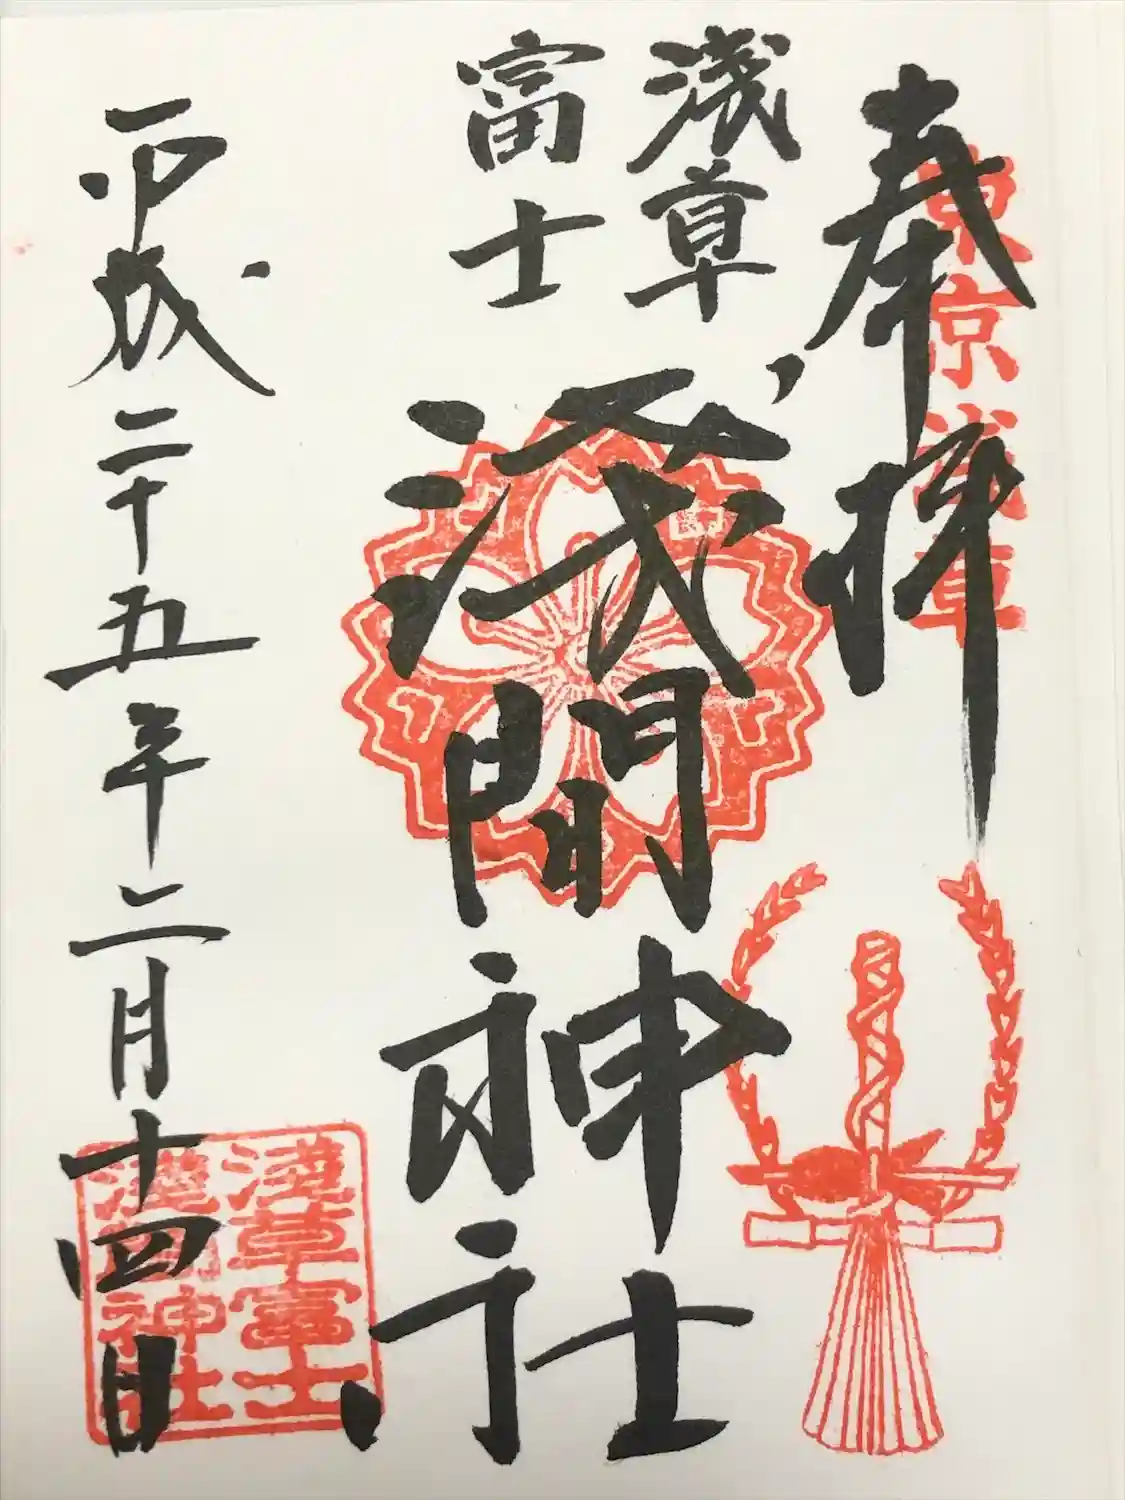 奉拝
東京浅草
浅草
富士
浅間神社
平成二十五年二月十四日
浅草富士
浅間神社